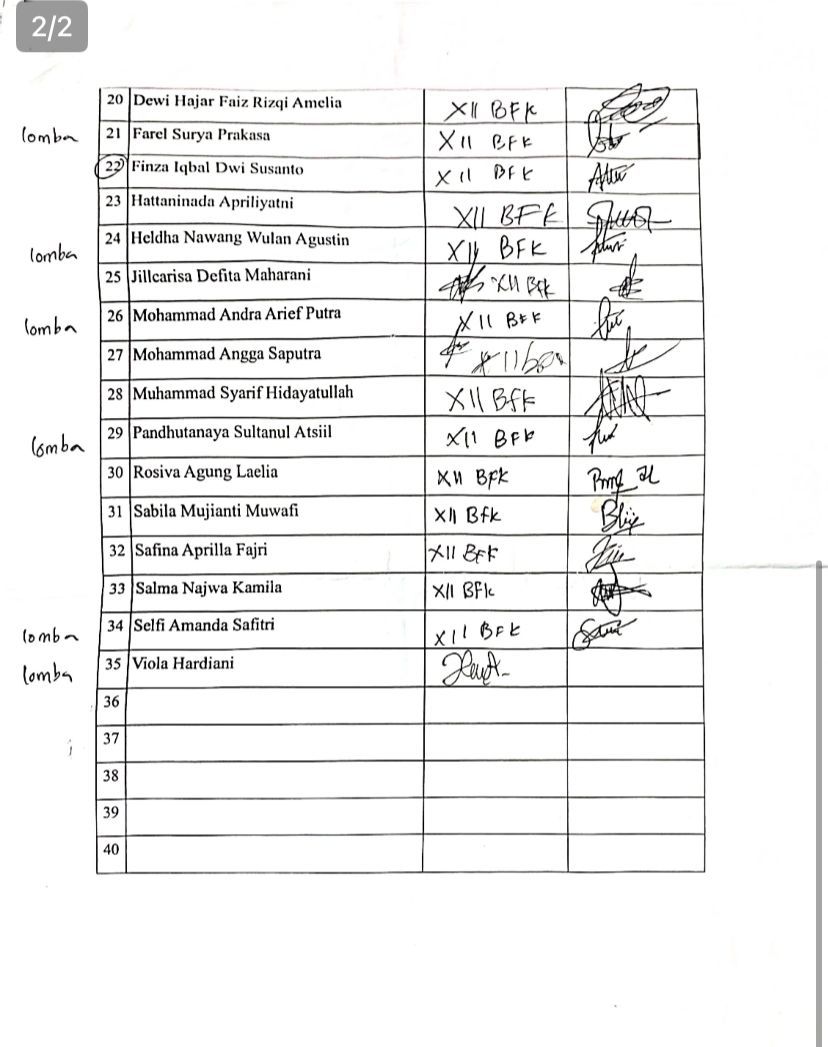 2/2
20 Dewi Hajar Faiz Rizqi Amelia XII BFK
lomba 21 Farel Surya Prakasa XII BFK
22 Finza Iqbal Dwi Susanto XII BFK
23 Hattaninada Apriliyatni XII BFK
lomba 24 Heldha Nawang Wulan Agustin XII BFK
25 Jillcarisa Defita Maharani XII BFK
lomba 26 Mohammad Andra Arief Putra XII BFK
27 Mohammad Angga Saputra
28 Muhammad Syarif Hidayatullah XII BFK
lomba 29 Pandhutanaya Sultanul Atsiil XII BFK
30 Rosiva Agung Laelia XII BFK
31 Sabila Mujianti Muwafi XII BFK
32 Safina Aprilla Fajri XII BFK
33 Salma Najwa Kamila XII BFK
lomba 34 Selfi Amanda Safitri XII BFK
lomba 35 Viola Hardiani
36
37
38
39
40